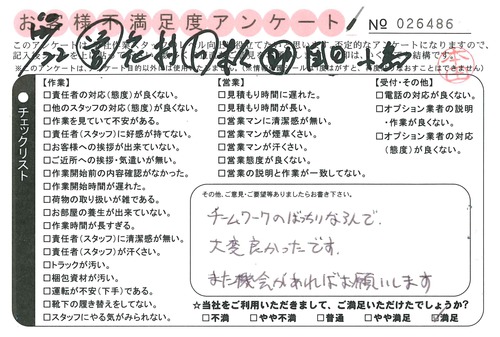 お客様不満足度アンケート
No 026486
チェックリスト
【作業】
□責任者の対応(態度)が良くない。
□他のスタッフの対応(態度)が良くない。
□作業を見ていて不安がある。
□責任者(スタッフ)に好感が持てない。
□お客様への挨拶が出来ていない。
□ご近所への挨拶・気遣いが無い。
□作業開始前の内容確認がなかった。
□作業開始時間が遅れた。
□荷物の取り扱いが雑である。
□お部屋の養生が出来ていない。
□作業時間が長すぎる。
□責任者(スタッフ)に清潔感が無い。
□責任者(スタッフ)が汗くさい。
□トラックが汚い。
□梱包資材が汚い。
□運転が不安(下手)である。
□靴下の履き替えをしてない。
□スタッフにやる気がみられない。
【営業】
□見積もり時間に遅れた。
□見積もり時間が長い。
□営業マンに清潔感が無い。
□営業マンが煙草くさい。
□営業マンが汗くさい。
□営業態度が良くない。
□営業の説明と作業が一致してない。
【受付・その他】
□電話の対応が良くない。
□オプション業者の説明
・作業が良くない。
□オプション業者の対応
(態度)が良くない。
その他、ご意見・ご要望等ありましたらお書き下さい。
チームワークのばっちりな3人で、
大変良かったです。
また機会があればお願いします
☆当社をご利用いただきまして、ご満足いただけたでしょうか?
□不満 □やや不満 □普通 □やや満足 ☑満足